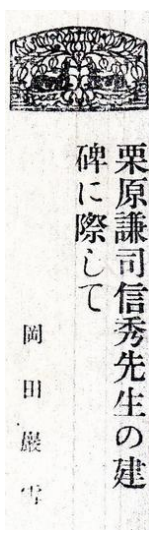 栗原謙司信秀先生の建
碑に際して
岡田巖雪